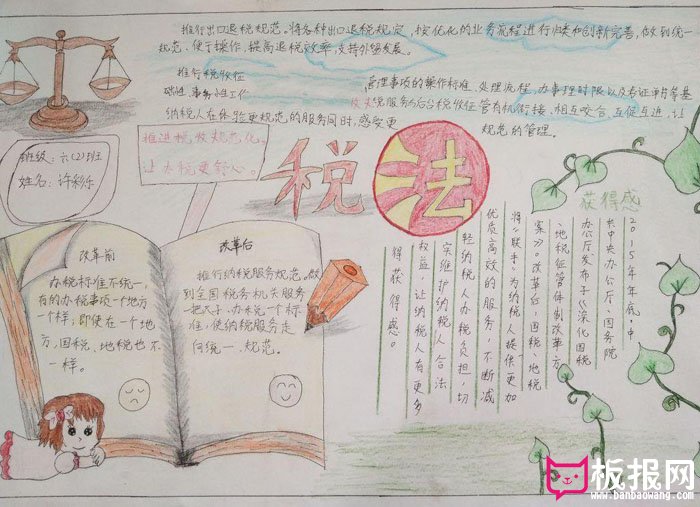 推行出口退税规范。将各种出口退税规定，按优化的业务流程进行归类和创新完善，做到统一
规范、便于操作，提高退税效率，支持外贸发展。
推行税收征
管理事项的操作标准、处理流程，办事理时限以及专证单片等基
础性、事务性工作
纳税服务与后台税收征管有机衔接，相互咬合、互促互进，让
纳税人在体验更规范的服务同时，感受更
规范的管理。
班级：六(2)班
姓名：许彩乐
推进税收规范化，
让办税更舒心。
税法
改革前
办税标准不统一，
有的办税事项一个地方
一个样；即使在一个地
方，国税、地税也不
一样。
改革后
推行纳税服务规范，做
到全国税务机关服务
一把尺子、办税一个标
准，使纳税服务走
向统一、规范。
获得感
2015年年底，中
共中央办公厅、国务院
办公厅发布了《深化国税
、地税征管体制改革方
案》。改革后，国税、地税
将“联手”为纳税人提供更加
优质高效的服务，不断减
轻纳税人办税负担，切
实维护纳税人合法
权益，让纳税人有更多
得获得感。
板报网
www.banbaowang.com